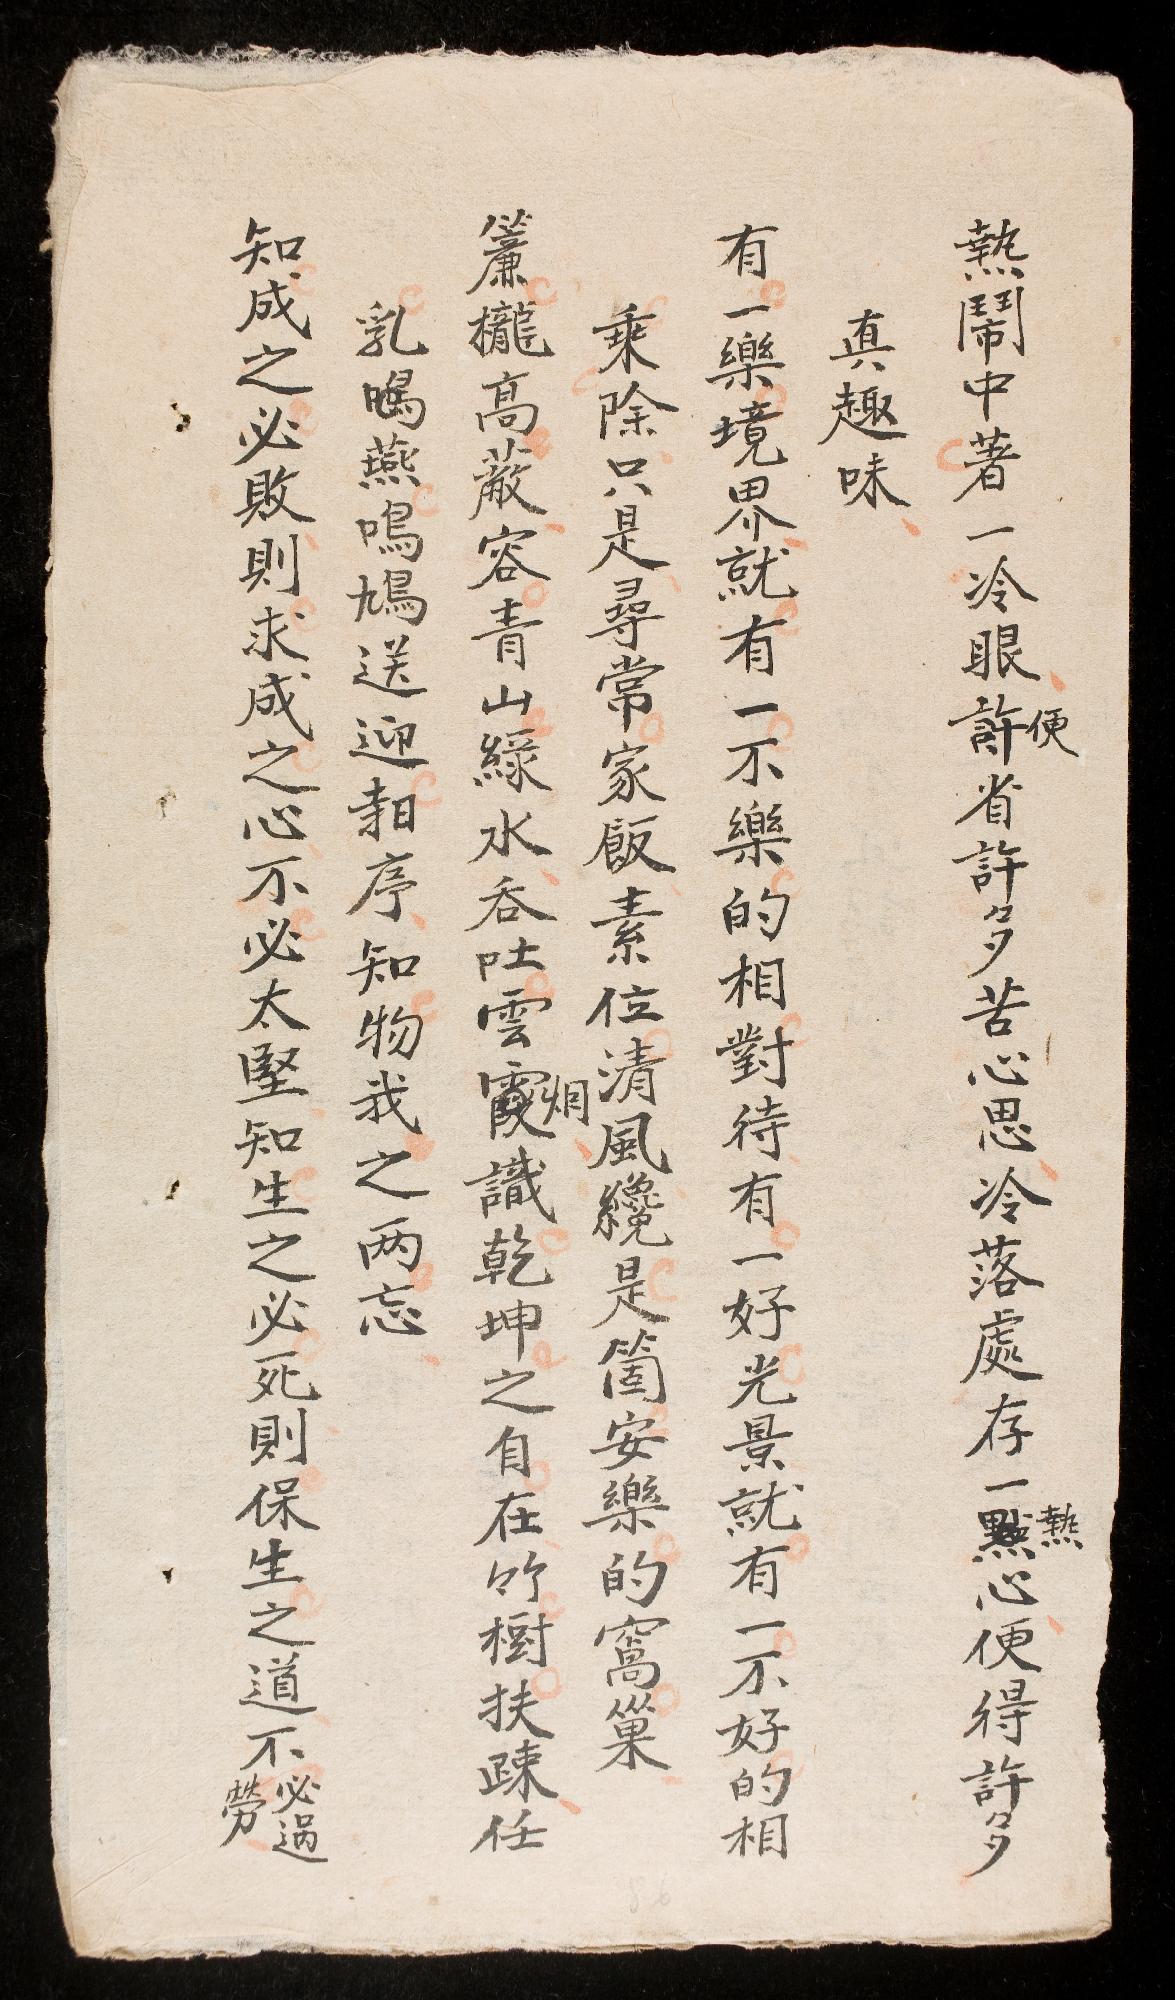 熱鬧中著一冷眼便省許多苦心思冷落處存一熱心便得許多
真趣味
有一樂境界就有一不樂的相對待有一好光景就有一不好的相
乘除只是尋常家飯素位清風纔是箇安樂的窩巢
簾櫳高蔽容青山綠水吞吐雲烟識乾坤之自在竹樹扶疎任
乳鳴燕鳴鳩送迎時序知物我之两忘
知成之必敗則求成之心不必太堅知生之必死則保生之道不必過勞